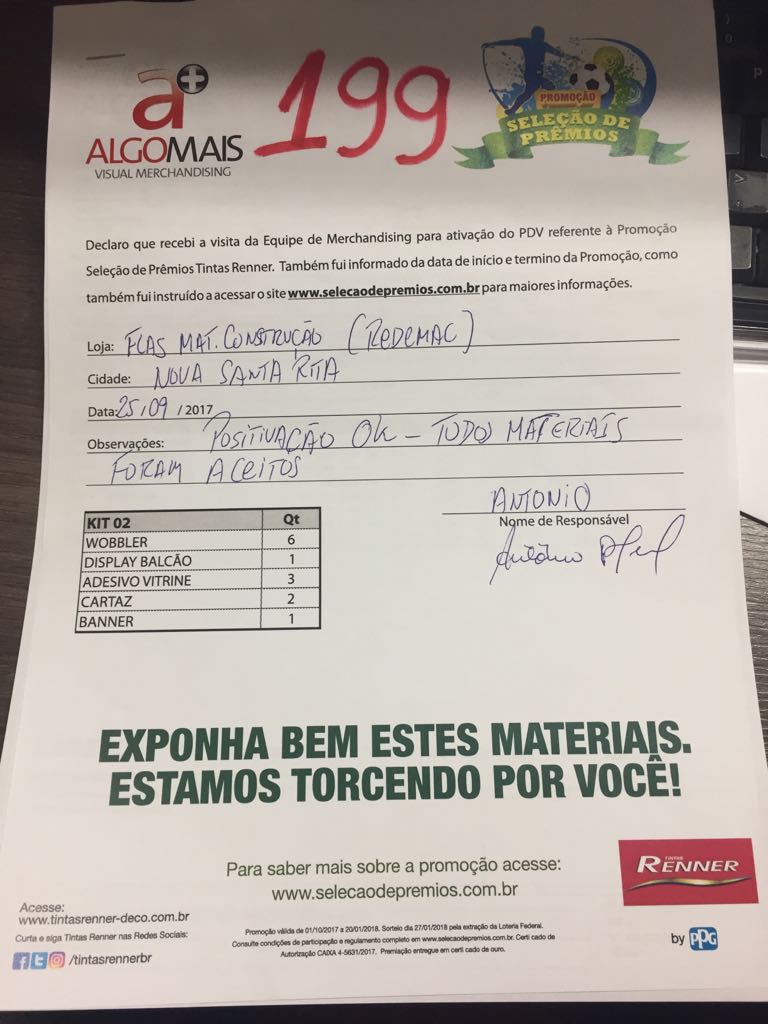 a+
ALGOMAIS
VISUAL MERCHANDISING
199
PROMOÇÃO
SELEÇÃO DE
PRÊMIOS
Declaro que recebi a visita da Equipe de Merchandising para ativação do PDV referente à Promoção
Seleção de Prêmios Tintas Renner. Também fui informado da data de início e termino da Promoção, como
também fui instruído a acessar o site www.selecaodepremios.com.br para maiores informações.
Loja: FLAS MAT. CONSTRUÇÃO (REDEMAC)
Cidade: NOVA SANTA RITA
Data: 25/09/2017
Observações: POSITIVAÇÃO OK - TODOS MATERIAIS
FORAM ACEITOS
ANTONIO
Nome de Responsável
Antônio
KIT 02 Qt
WOBBLER 6
DISPLAY BALCÃO 1
ADESIVO VITRINE 3
CARTAZ 2
BANNER 1
EXPONHA BEM ESTES MATERIAIS.
ESTAMOS TORCENDO POR VOCÊ!
Para saber mais sobre a promoção acesse:
www.selecaodepremios.com.br
TINTAS
RENNER
by PPG
Acesse:
www.tintasrenner-deco.com.br
Curta e siga Tintas Renner nas Redes Sociais:
/tintasrennerbr
Promoção válida de 01/10/2017 a 20/01/2018. Sorteio dia 27/01/2018 pela extração da Loteria Federal.
Consulte condições de participação e regulamento completo em www.selecaodepremios.com.br. Certi cado de
Autorização CAIXA 4-5631/2017. Premiação entregue em certi cado de ouro.